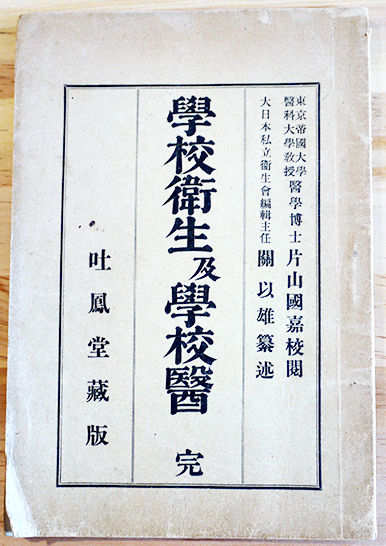 東京帝國大學
醫科大學教授 醫學博士 片山國嘉校閲
大日本私立衞生會編輯主任 關以雄纂述
學校衞生及學校醫 完
吐鳳堂藏版